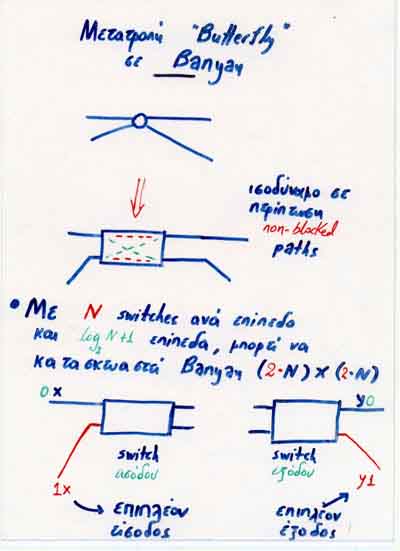 Μετατροπή "Butterfly"
σε Banyan
ισοδύναμο σε
περίπτωση
non-blocked
paths
• Με N switches ανά επίπεδο
και log₂N+1 επίπεδα, μπορεί να
κατασκευαστεί Banyan (2·N)×(2·N)
0x
y0
switch
εισόδου
switch
εξόδου
1x
y1
επιπλέον
είσοδος
επιπλέον
έξοδος